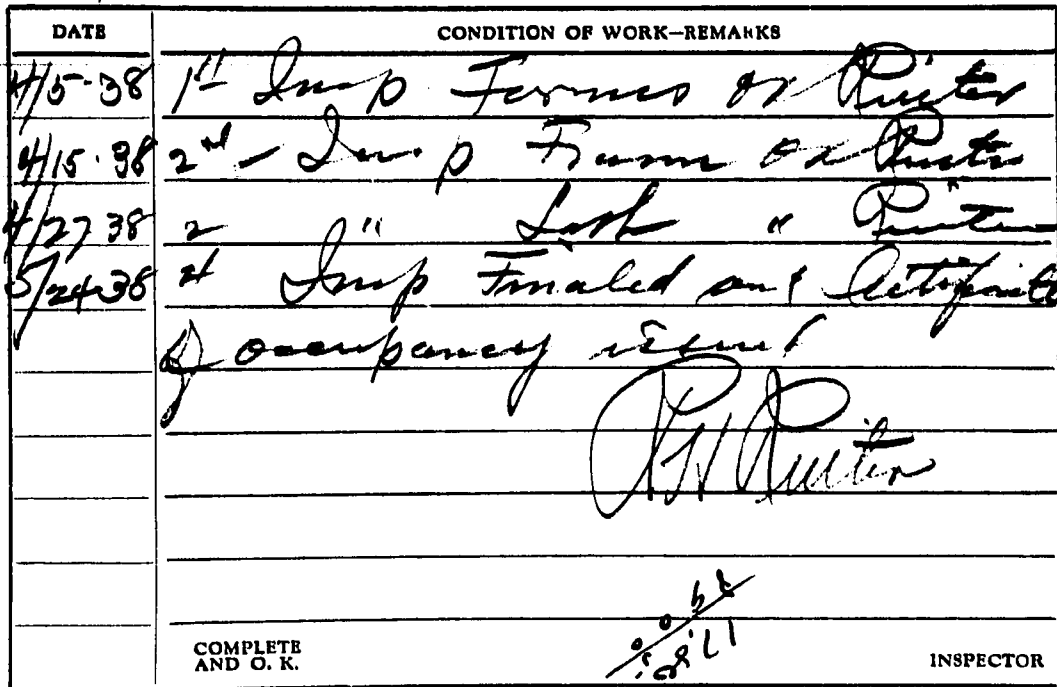 DATE CONDITION OF WORK—REMARKS
4/5-38 1st Insp Forms OK Ruiter
4/15-38 2nd - Insp Frame OK Ruiter
4/27 38 2 " Lath " Ruiter
5/24-38 4 Insp Finaled and Certificate
of occupancy issued
R H Ruiter
COMPLETE
AND O. K. INSPECTOR